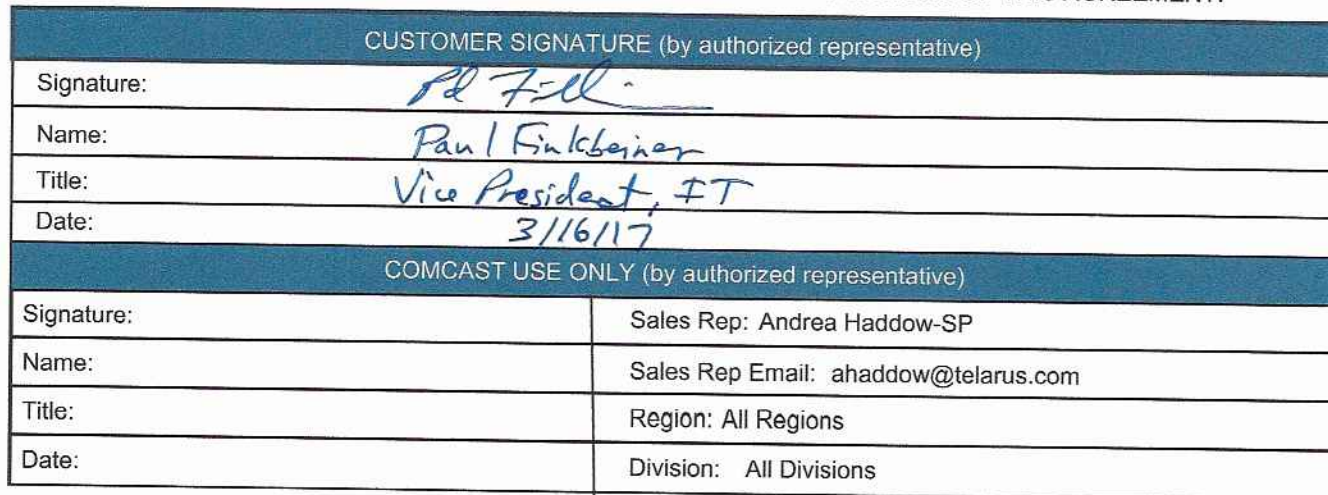 AGREEMENT.
CUSTOMER SIGNATURE (by authorized representative)
Signature:
Name: Paul Finkbeiner
Title: Vice President, IT
Date: 3/16/17
COMCAST USE ONLY (by authorized representative)
Signature: Sales Rep: Andrea Haddow-SP
Name: Sales Rep Email: ahaddow@telarus.com
Title: Region: All Regions
Date: Division: All Divisions